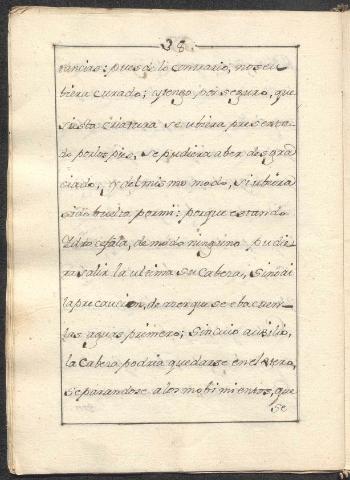 38.
tancias: pues de lo contrario, no se u-
biera curado; y tengo por seguro, que
si esta criatura se ubiera presenta-
do por los pies, se pudiera aber desgra-
ciado; y del mismo modo, si ubiera
sido buelta por mi: porque estando
Ydrocefala, de modo ninguno pudie-
ra salir la ultima su Cabeza, sino ai
la precaucion, de que se ebacuen
las aguas primero; sin cuio ausilio,
la Cabeza podria quedarse en el utero,
separandose a los mobimientos, que
se